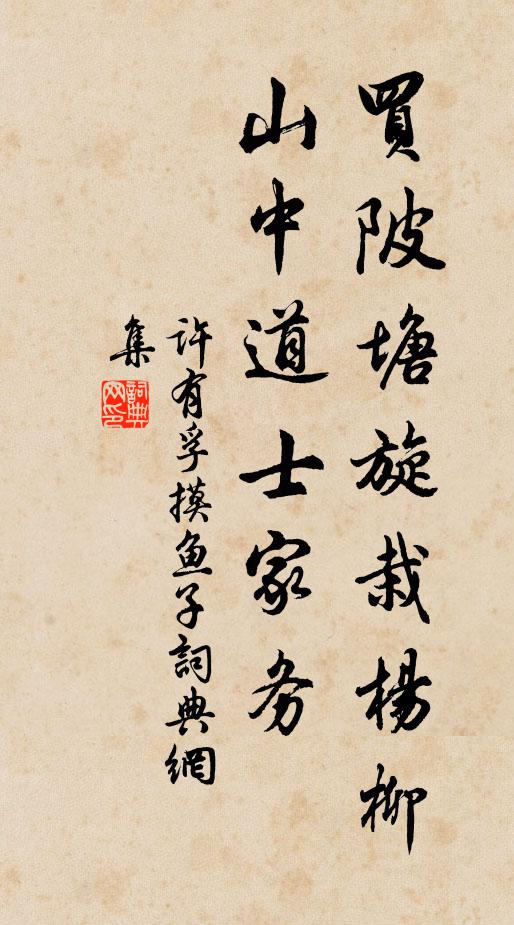 買陂塘旋栽楊柳
山中道士家务
許有孚摸鱼子詞典網
集
詞典网印